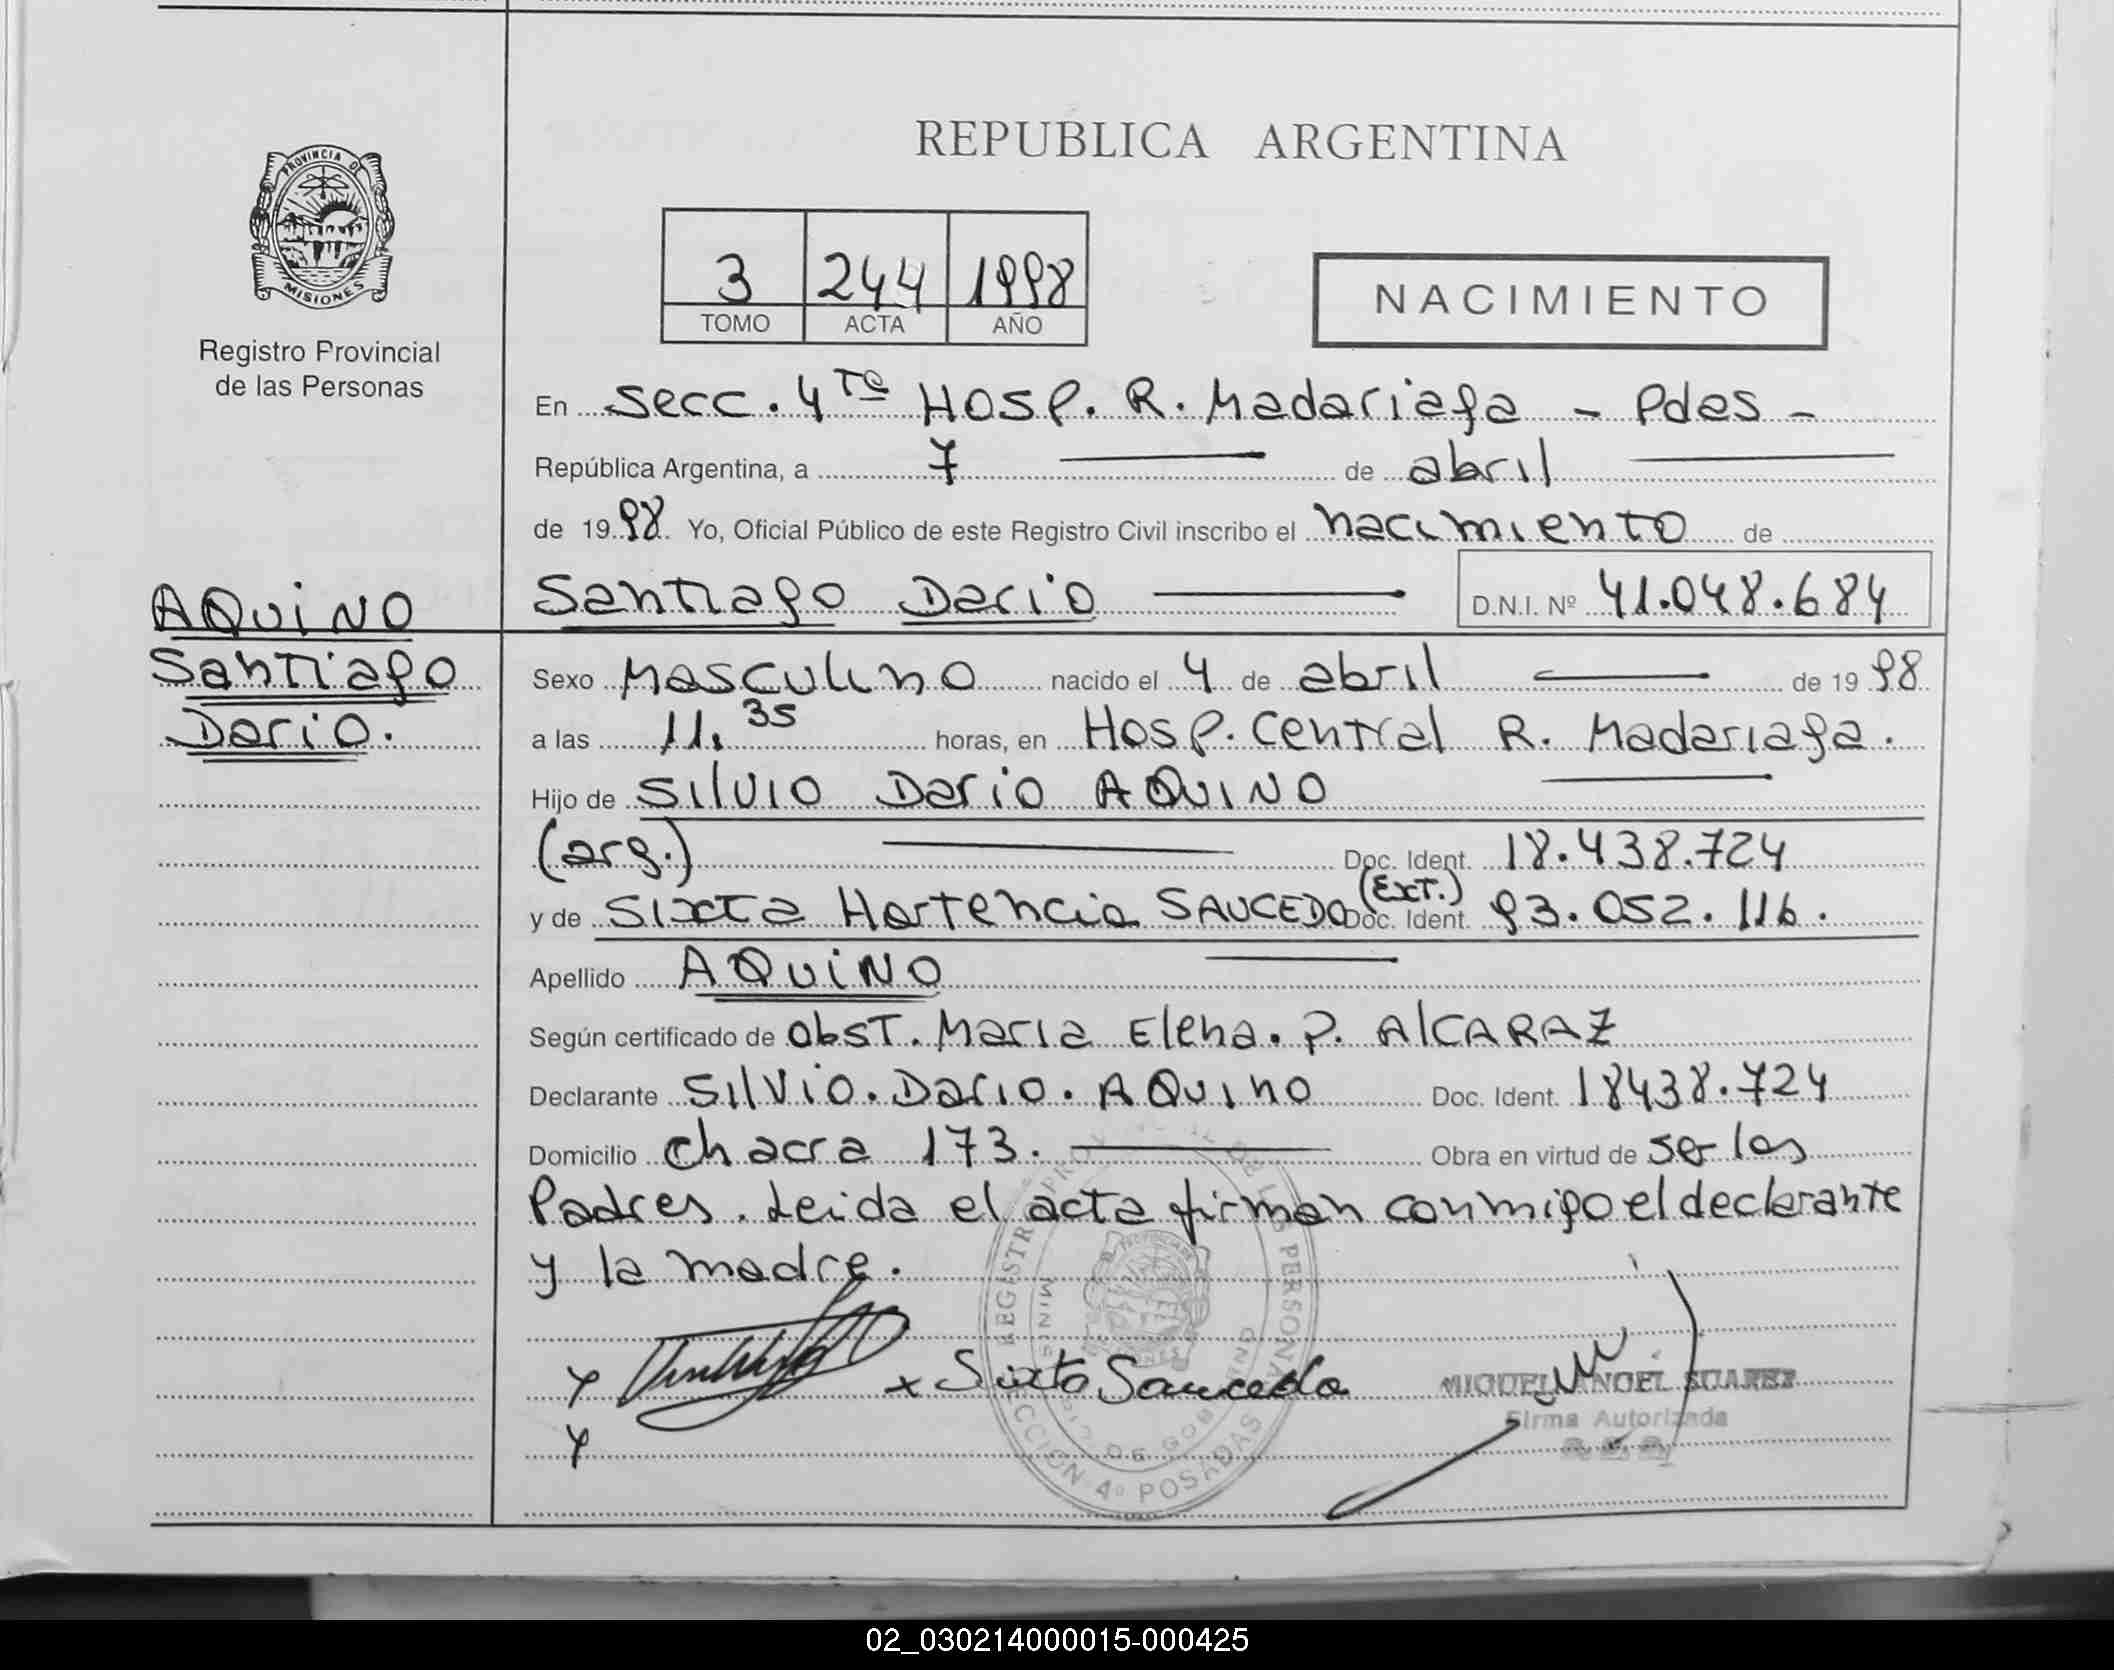 REPUBLICA ARGENTINA
PROVINCIA DE
MISIONES
Registro Provincial
de las Personas
3 244 1998
TOMO ACTA AÑO
NACIMIENTO
En Secc. 4ta Hosp. R. Madariaga - Pdas -
República Argentina, a 7 de abril
de 1998 Yo, Oficial Público de este Registro Civil inscribo el nacimiento de
AQUINO
Santiago
Dario.
Santiago Dario D.N.I. Nº 41.048.684
Sexo Masculino nacido el 4 de abril de 1998
a las 11.35 horas, en Hosp. Central R. Madariaga.
Hijo de Silvio Dario AQUINO
(arg.) Doc. Ident. 18.438.724
y de Sixta Hortencia SAUCEDO (Ext.) Doc. Ident. 93.052.116.
Apellido AQUINO
Según certificado de Obst. Maria Elena. P. AlCARAZ
Declarante Silvio. Dario. AQuino Doc. Ident. 18438.724
Domicilio chacra 173. Obra en virtud de ser los
Padres. Leida el acta firman conmigo el declarante
y la madre.
x x Sixta Saucedo
MIGUEL ANGEL SUAREZ
Firma Autorizada
x
REGISTRO PROVINCIAL DE LAS PERSONAS
SECCION 4º POSADAS
02_030214000015-000425